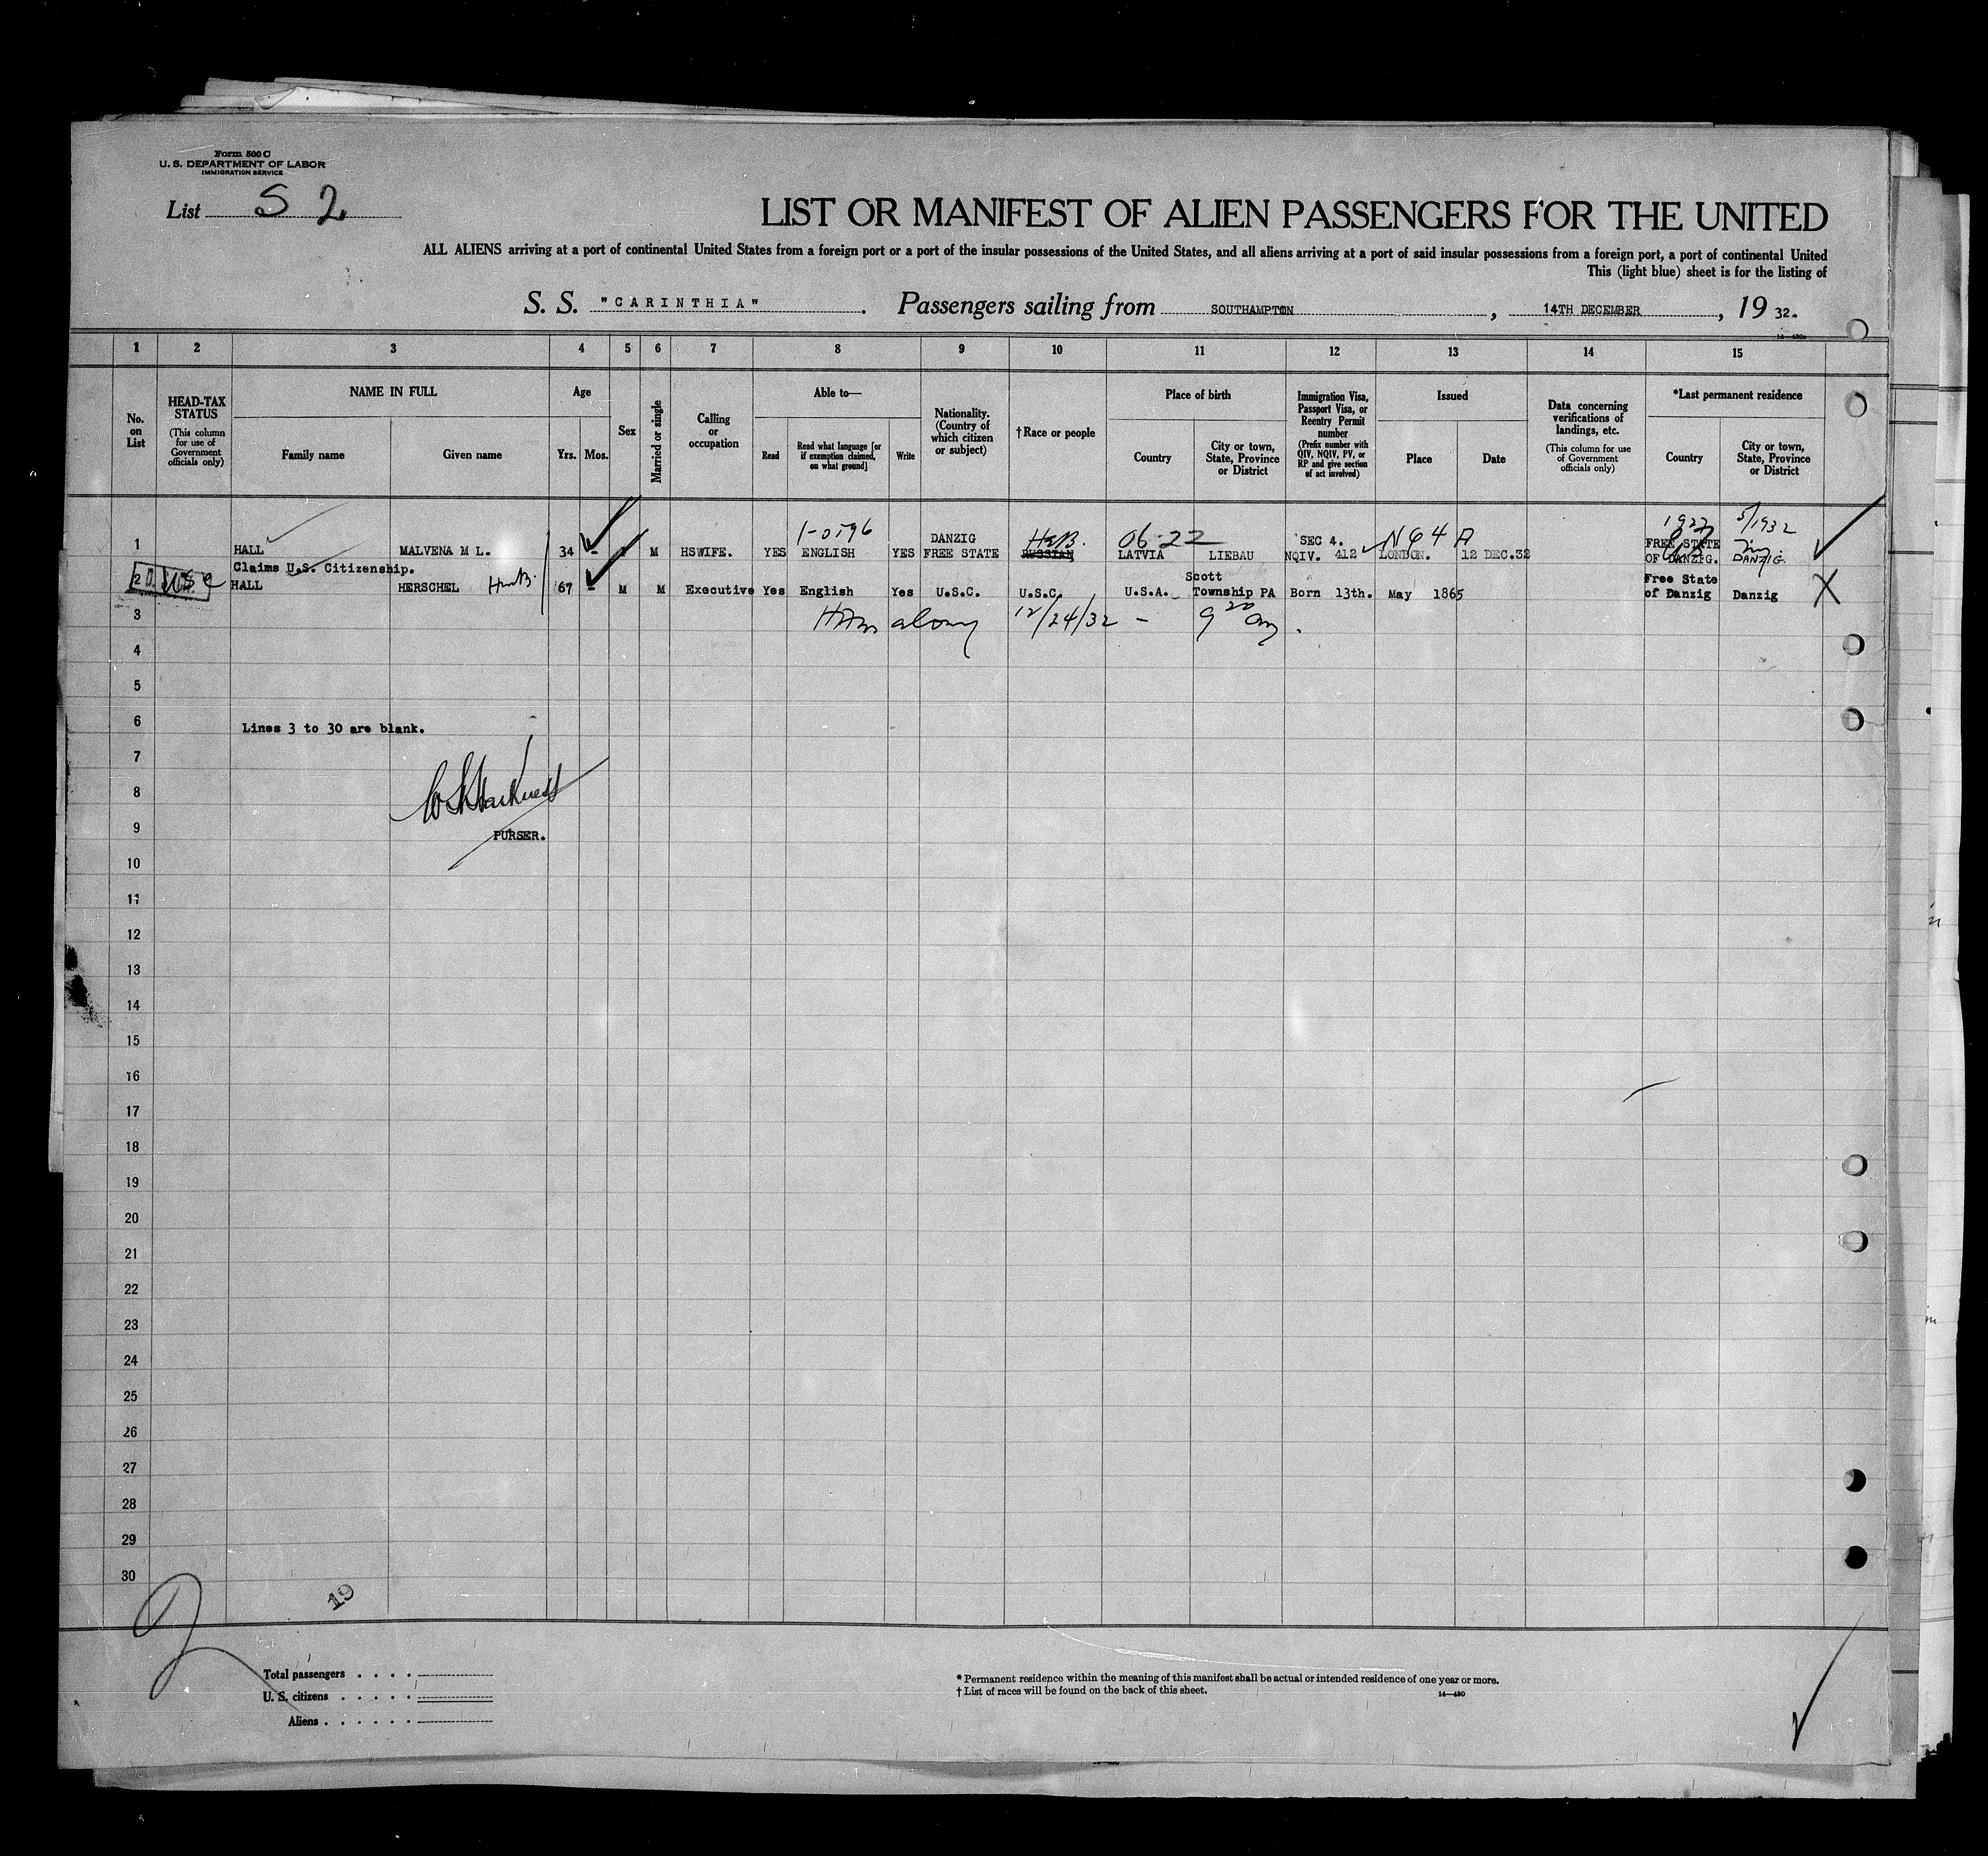 Form 500 C
U. S. DEPARTMENT OF LABOR
IMMIGRATION SERVICE
List S 2
LIST OR MANIFEST OF ALIEN PASSENGERS FOR THE UNITED
ALL ALIENS arriving at a port of continental United States from a foreign port or a port of the insular possessions of the United States, and all aliens arriving at a port of said insular possessions from a foreign port, a port of continental United
This (light blue) sheet is for the listing of
S. S. "CARINTHIA". Passengers sailing from SOUTHAMPTON, 14TH DECEMBER, 19 32.
1 2 3 4 5 6 7 8 9 10 11 12 13 14 15
No. on List
HEAD-TAX STATUS (This column for use of Government officials only)
NAME IN FULL
Family name Given name
Age
Yrs. Mos.
Sex
Married or single
Calling or occupation
Able to—
Read
Read what language [or if exemption claimed, on what ground]
Write
Nationality. (Country of which citizen or subject)
†Race or people
Place of birth
Country
City or town, State, Province or District
Immigration Visa, Passport Visa, or Reentry Permit number (Prefix number with QIV, NQIV, PV, or RP and give section of act involved)
Issued
Place Date
Data concerning verifications of landings, etc. (This column for use of Government officials only)
*Last permanent residence
Country
City or town, State, Province or District
1-0596 06-22 N64 A 5/1932
1 HALL MALVENA M L. 34 - M HSWIFE. YES ENGLISH YES DANZIG FREE STATE RUSSIAN LATVIA LIEBAU SEC 4. NQIV. 412 LONDON. 12 DEC.32 FREE STATE OF DANZIG. DANZIG
Claims U.S. Citizenship.
2 HALL HERSCHEL 67 - M M Executive Yes English Yes U.S.C. U.S.C. U.S.A. Scott Township PA Born 13th. May 1865 Free State of Danzig Danzig X
3 12/24/32 - 9 20
4
5
6
Lines 3 to 30 are blank.
7
8
9
PURSER.
10
11
12
13
14
15
16
17
18
19
20
21
22
23
24
25
26
27
28
29
30
19
2
Total passengers . . . .
U. S. citizens . . . . .
Aliens . . . . . .
* Permanent residence within the meaning of this manifest shall be actual or intended residence of one year or more.
† List of races will be found on the back of this sheet.
14—430